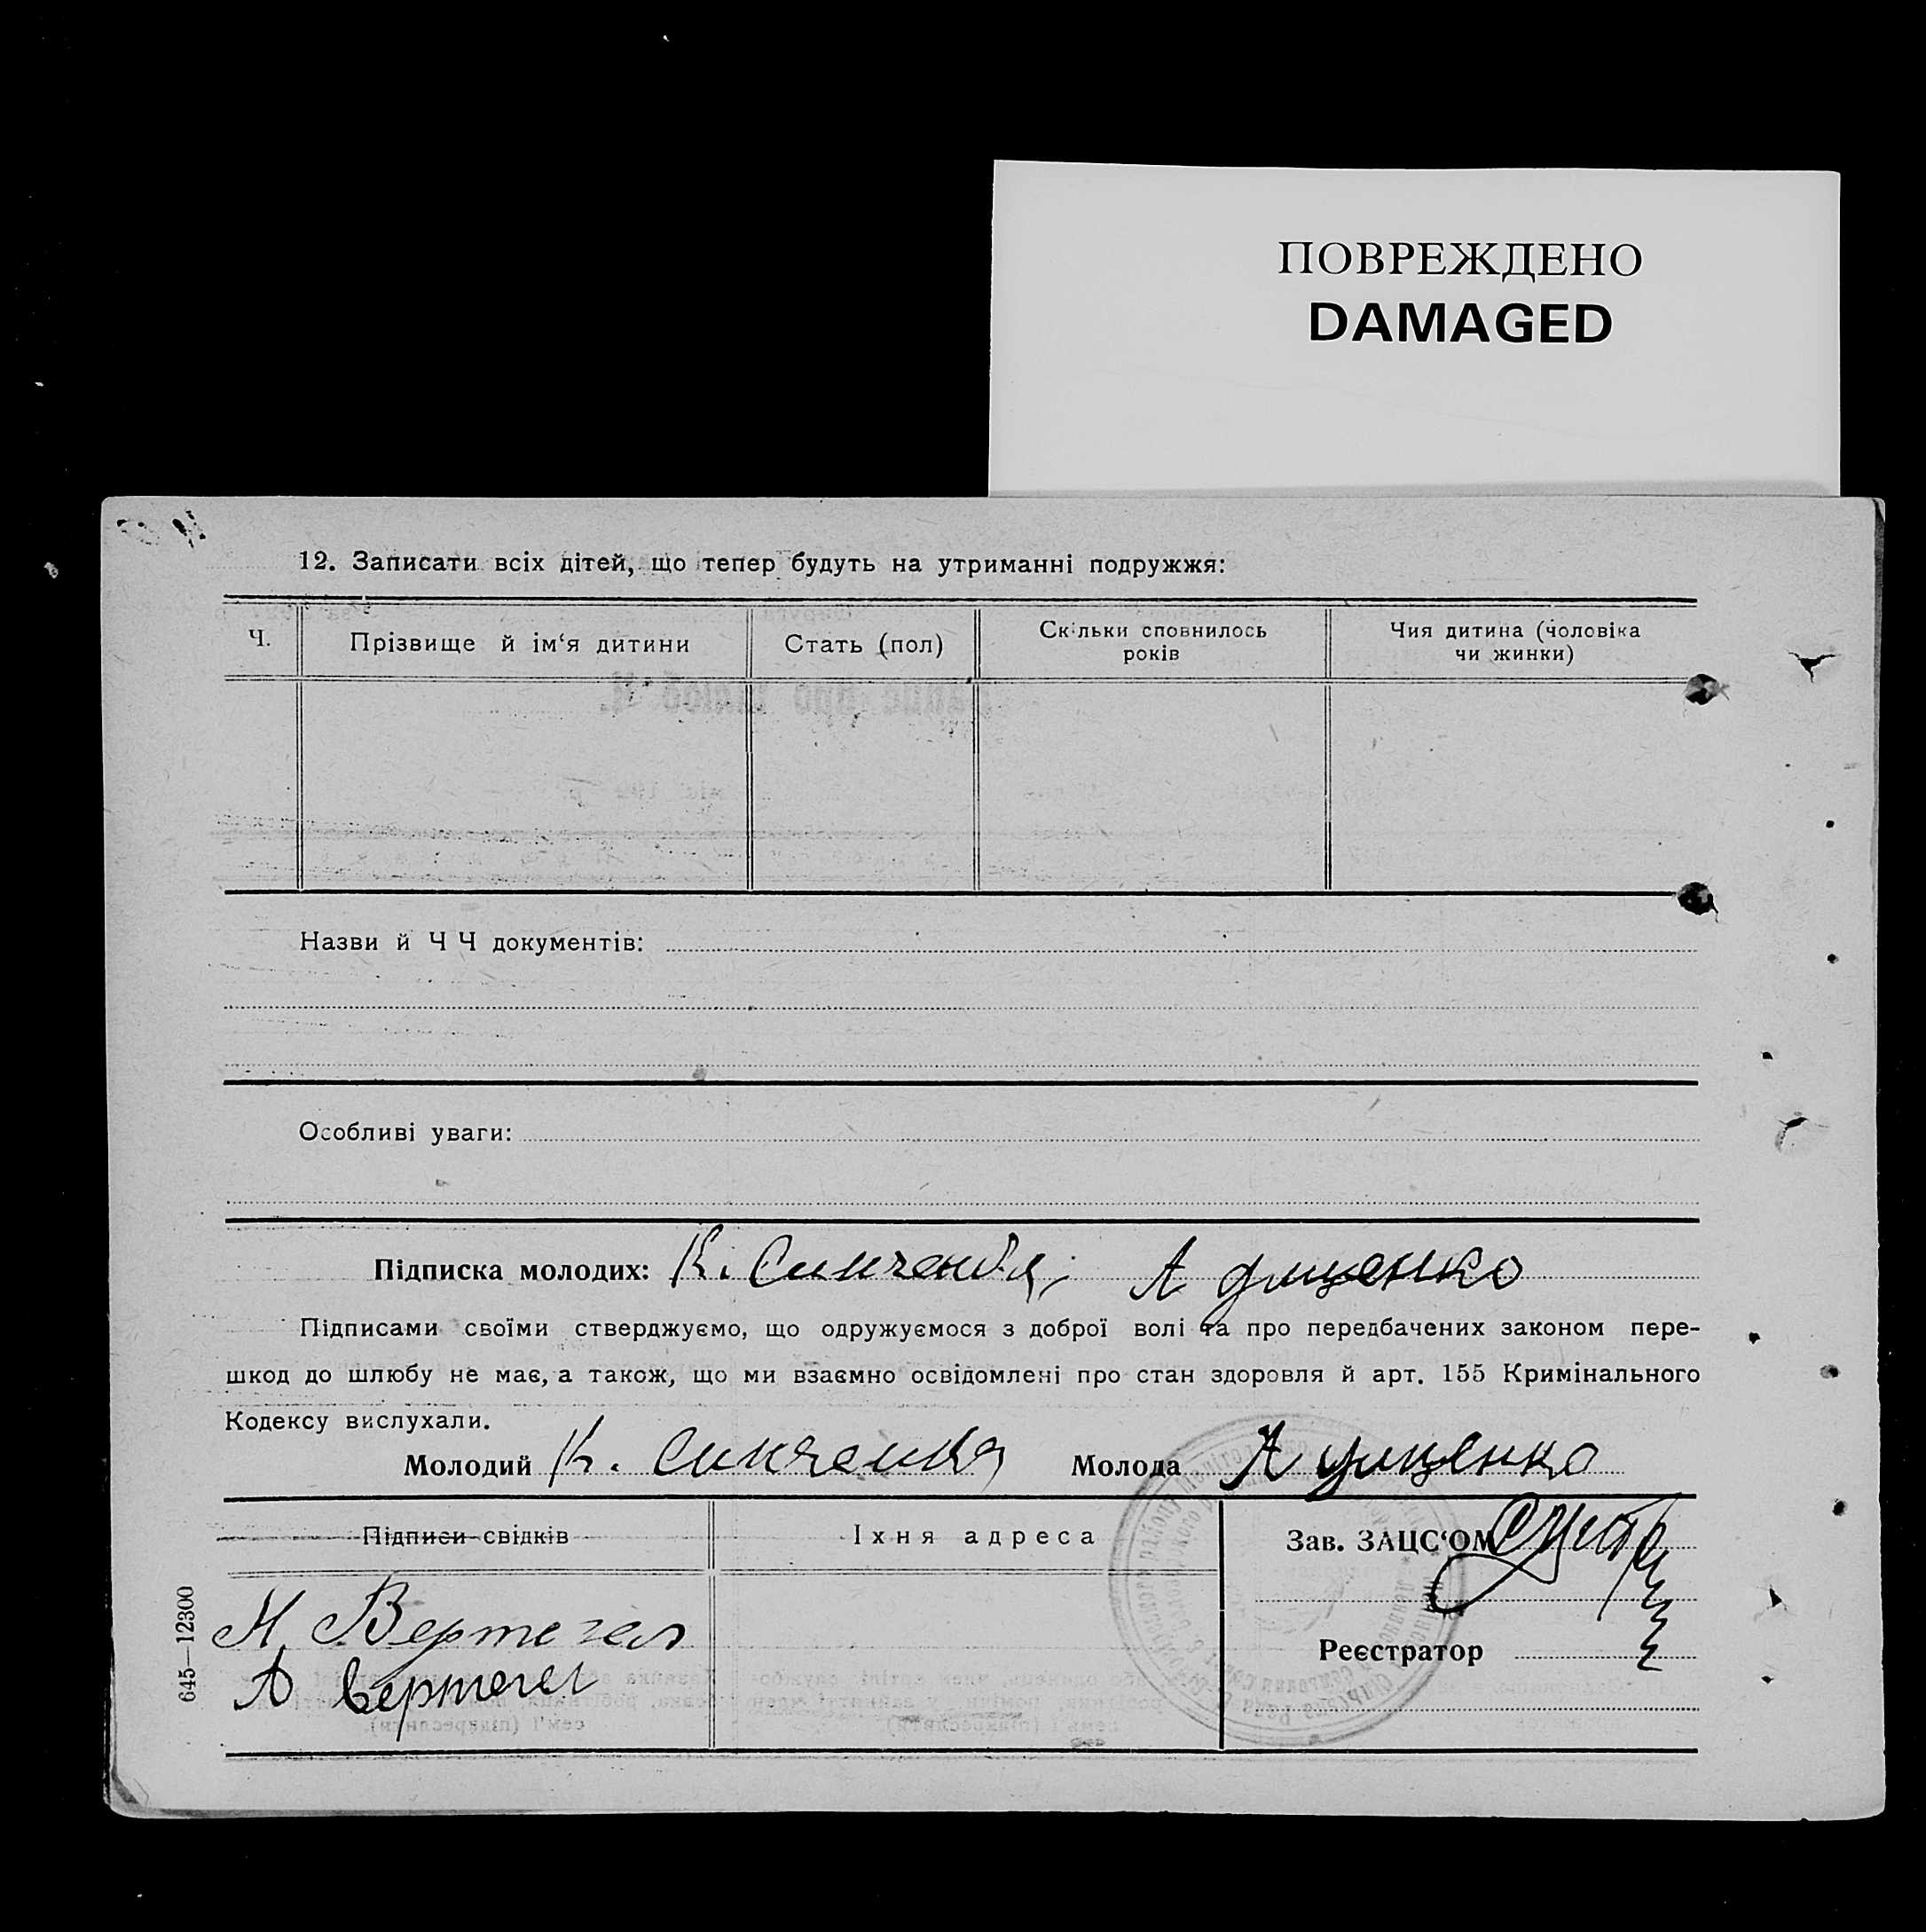 ПОВРЕЖДЕНО
DAMAGED
12. Записати всіх дітей, що тепер будуть на утриманні подружжя:
Ч.
Прізвище й ім‘я дитини
Стать (пол)
Скільки сповнилось
років
Чия дитина (чоловіка
чи жинки)
Назви й Ч Ч документів:
Особливі уваги:
Підписка молодих: К.
Підписами своїми стверджуємо, що одружуємося з доброї волі та про передбачених законом пере-
шкод до шлюбу не має, а також, що ми взаємно освідомлені про стан здоровля й арт. 155 Кримінального
Кодексу вислухали.
Молодий К. Молода А
Підписи свідків
Іхня адреса
Зав. ЗАЦС‘ОМ
Н. Вертегел
А Вертегел
Реєстратор
645—12300